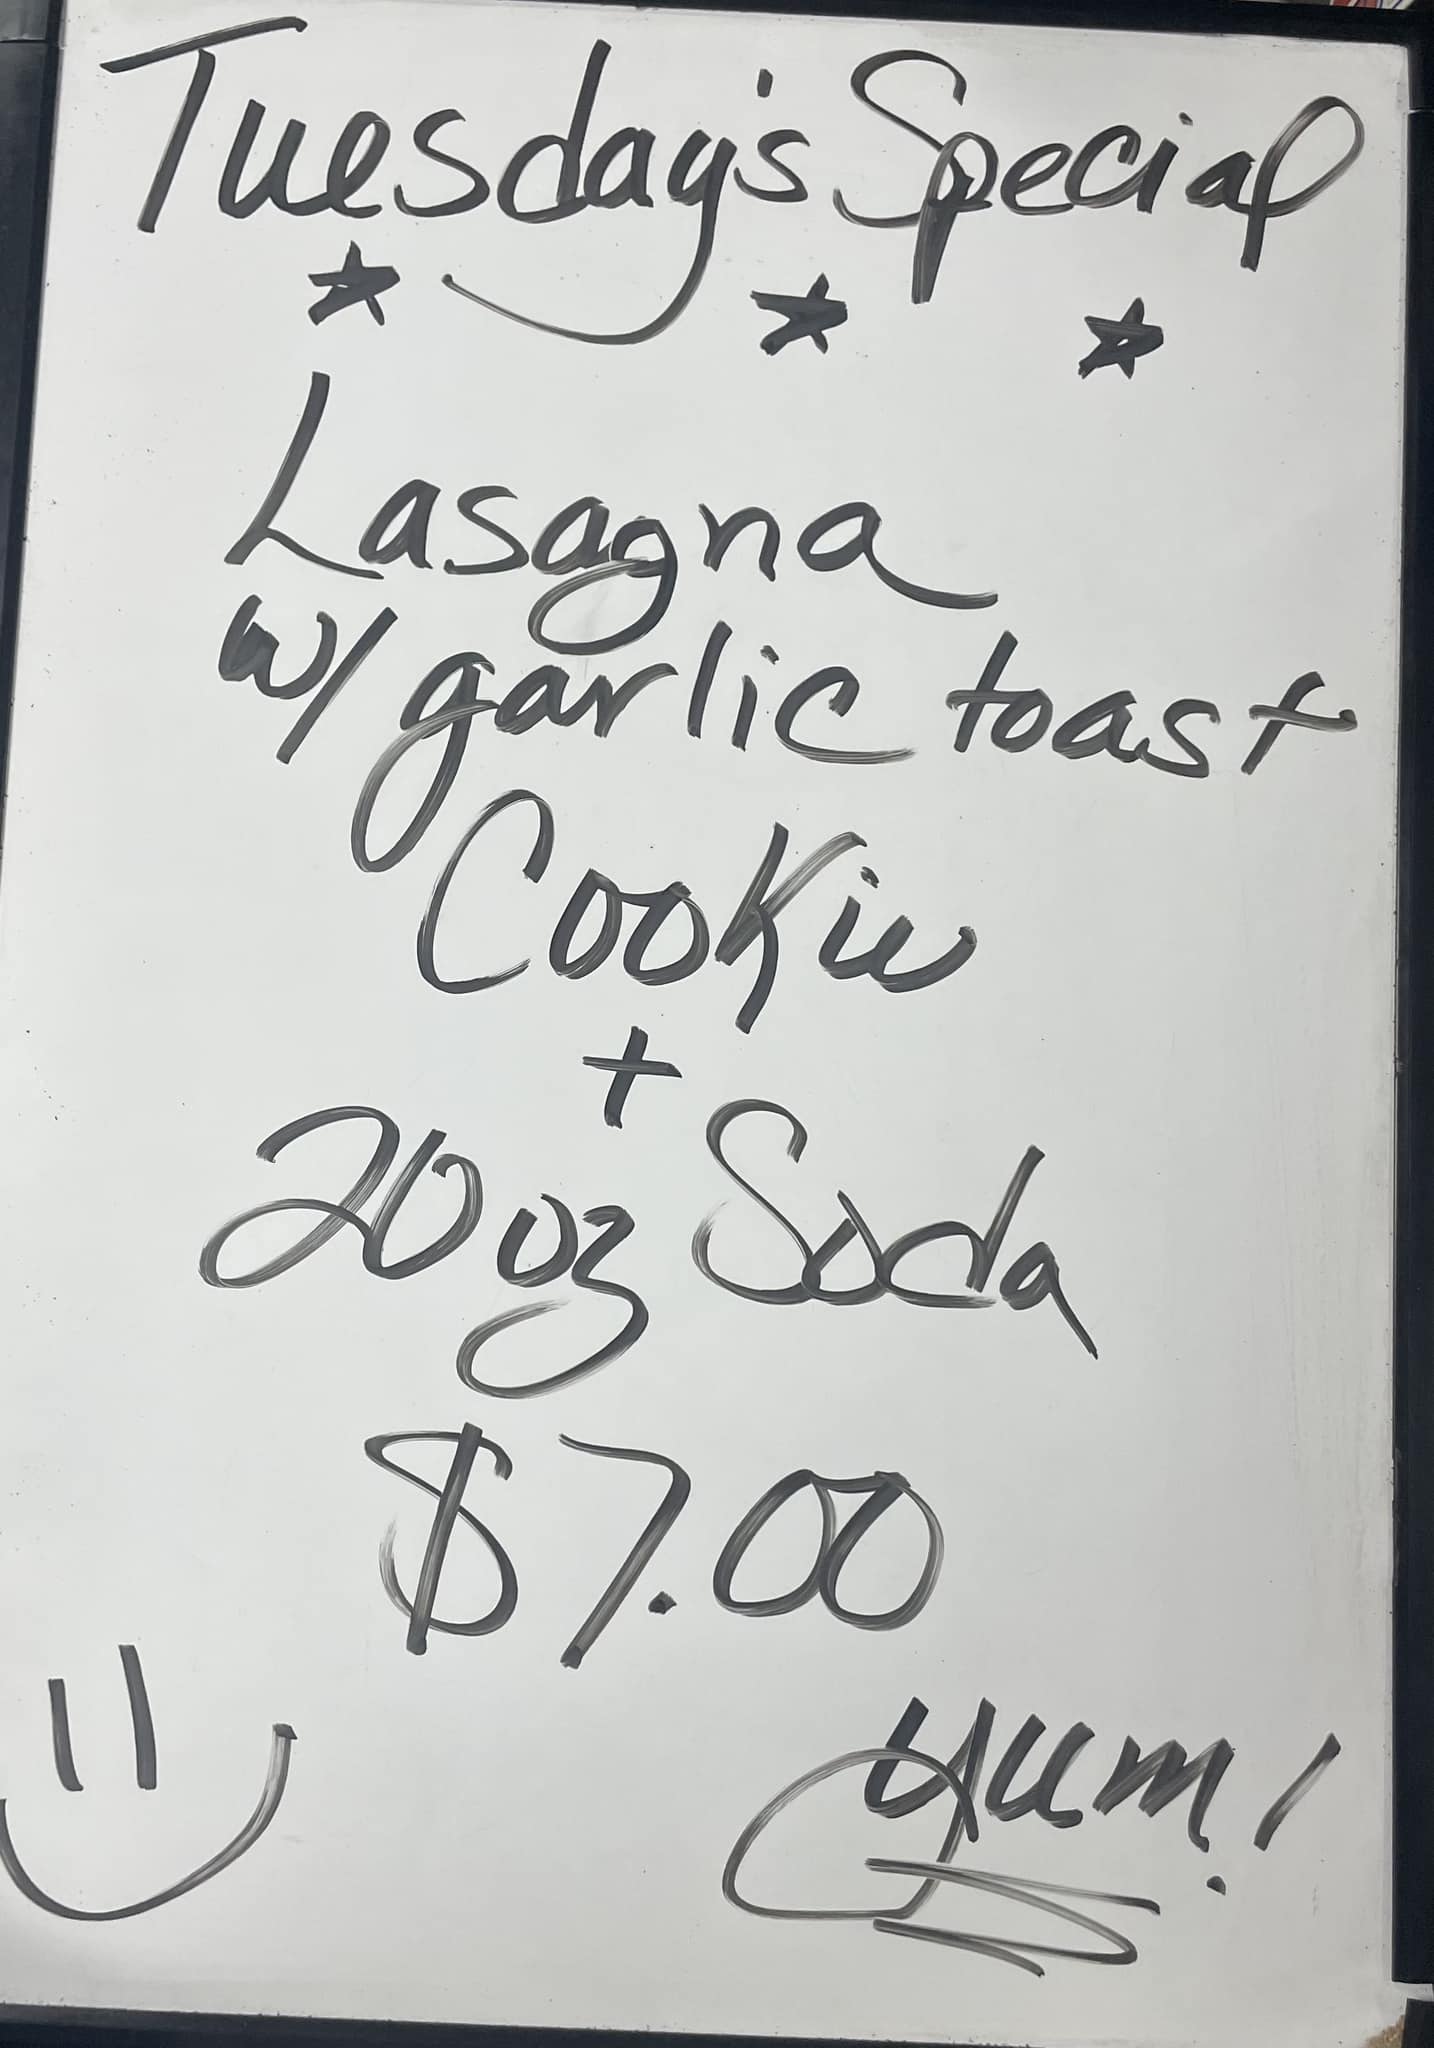 Tuesday's Special
Lasagna
w/ garlic toast
Cookie
+
20 oz Soda
$7.00
Yum!